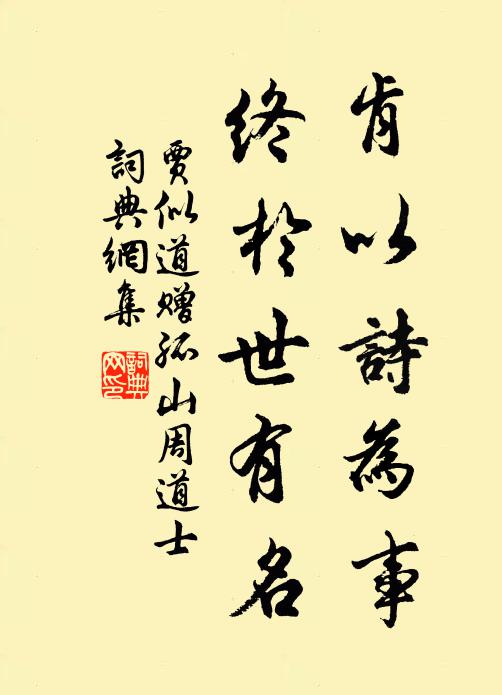 肯以詩為事
終於世有名
賈似道赠孤山周道士
詞典網集
詞典
网印